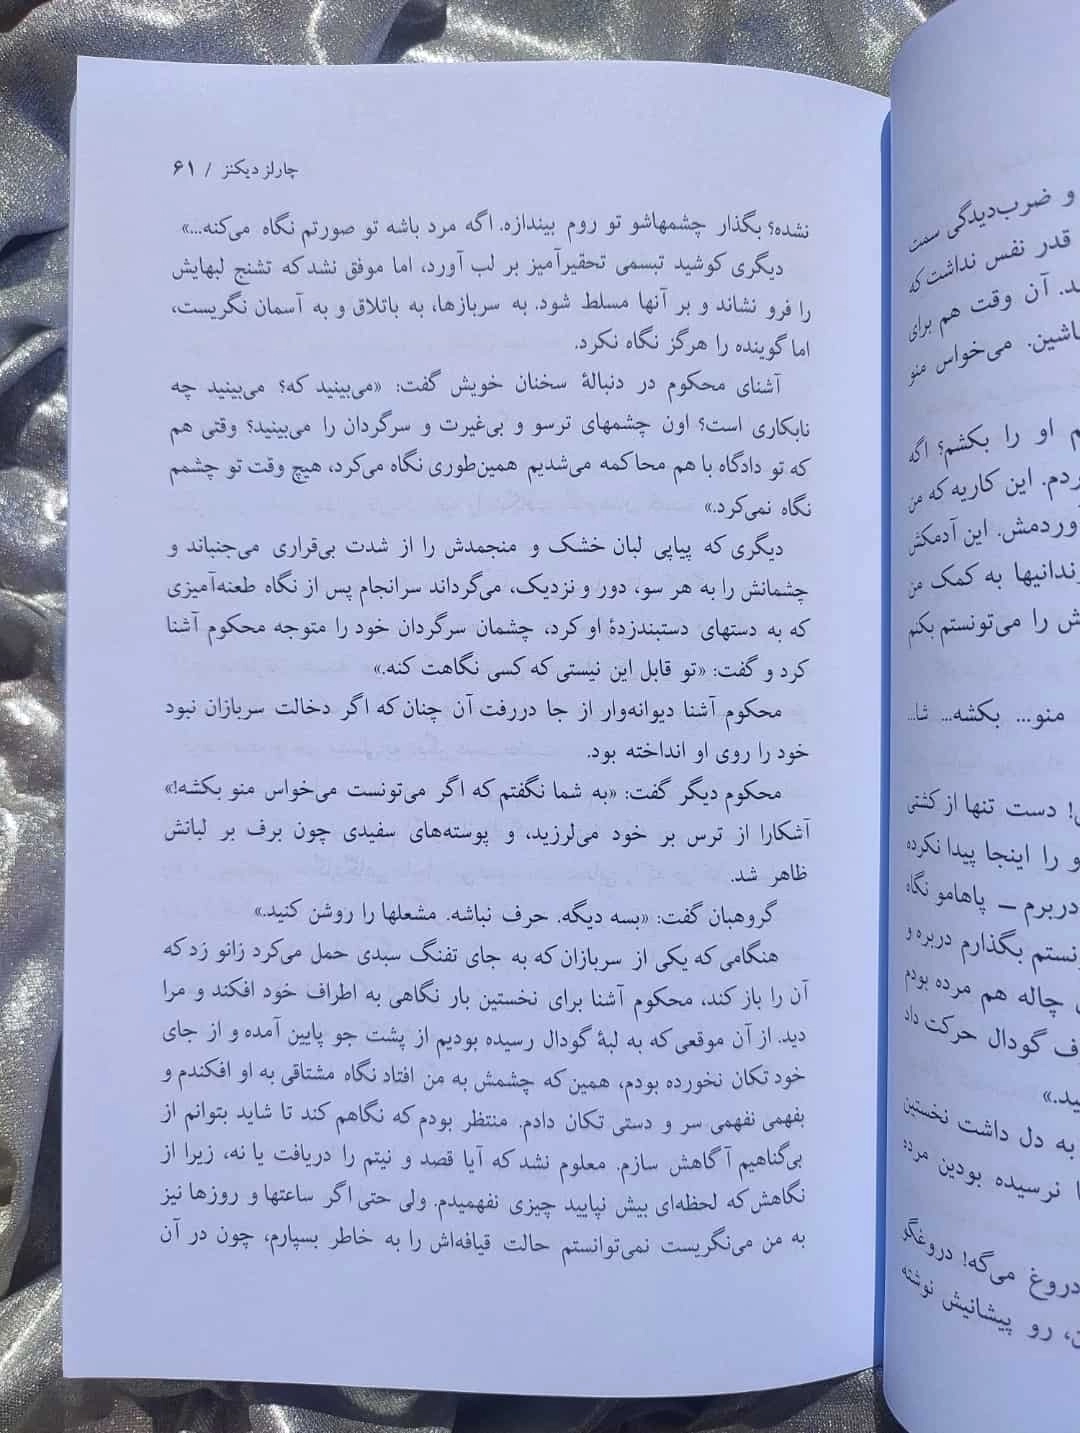 چارلز دیکنز / ۶۱
نشده؟ بگذار چشمهاشو تو روم بیندازه. اگه مرد باشه تو صورتم نگاه می‌کنه...»
دیگری کوشید تبسمی تحقیرآمیز بر لب آورد، اما موفق نشد که تشنج لبهایش
را فرو نشاند و بر آنها مسلط شود. به سربازها، به باتلاق و به آسمان نگریست،
اما گوینده را هرگز نگاه نکرد.
آشنای محکوم در دنبالهٔ سخنان خویش گفت: «می‌بینید که؟ می‌بینید چه
نابکاری است؟ اون چشمهای ترسو و بی‌غیرت و سرگردان را می‌بینید؟ وقتی هم
که تو دادگاه با هم محاکمه می‌شدیم همین‌طوری نگاه می‌کرد، هیچ وقت تو چشمم
نگاه نمی‌کرد.»
دیگری که پیاپی لبان خشک و منجمدش را از شدت بی‌قراری می‌جنباند و
چشمانش را به هر سو، دور و نزدیک، می‌گرداند سرانجام پس از نگاه طعنه‌آمیزی
که به دستهای دستبندزدهٔ او کرد، چشمان سرگردان خود را متوجه محکوم آشنا
کرد و گفت: «تو قابل این نیستی که کسی نگاهت کنه.»
محکوم آشنا دیوانه‌وار از جا دررفت آن چنان که اگر دخالت سربازان نبود
خود را روی او انداخته بود.
محکوم دیگر گفت: «به شما نگفتم که اگر می‌تونست می‌خواس منو بکشه!»
آشکارا از ترس بر خود می‌لرزید، و پوسته‌های سفیدی چون برف بر لبانش
ظاهر شد.
گروهبان گفت: «بسه دیگه. حرف نباشه. مشعلها را روشن کنید.»
هنگامی که یکی از سربازان که به جای تفنگ سبدی حمل می‌کرد زانو زد که
آن را باز کند، محکوم آشنا برای نخستین بار نگاهی به اطراف خود افکند و مرا
دید. از آن موقعی که به لبهٔ گودال رسیده بودیم از پشت جو پایین آمده و از جای
خود تکان نخورده بودم، همین که چشمش به من افتاد نگاه مشتاقی به او افکندم و
بفهمی نفهمی سر و دستی تکان دادم. منتظر بودم که نگاهم کند تا شاید بتوانم از
بی‌گناهیم آگاهش سازم. معلوم نشد که آیا قصد و نیتم را دریافت یا نه، زیرا از
نگاهش که لحظه‌ای بیش نپایید چیزی نفهمیدم. ولی حتی اگر ساعتها و روزها نیز
به من می‌نگریست نمی‌توانستم حالت قیافه‌اش را به خاطر بسپارم، چون در آن
و ضرب‌دیدگی سمت
قدر نفس نداشت که
د. آن وقت هم برای
اشین. می‌خواس منو
او را بکشم؟ اگه
ردم. این کاریه که من
وردمش. این آدمکش
ندانیها به کمک من
ش را می‌تونستم بکنم
منو... بکشه... شا...
! دست تنها از کشتی
و را اینجا پیدا نکرده
دربرم ــ پاهامو نگاه
ونستم بگذارم دربره و
چاله هم مرده بودم
ف گودال حرکت داد
ید.»
به دل داشت نخستین
ا نرسیده بودین مرده
دروغ می‌گه! دروغگو
ن، رو پیشانیش نوشته